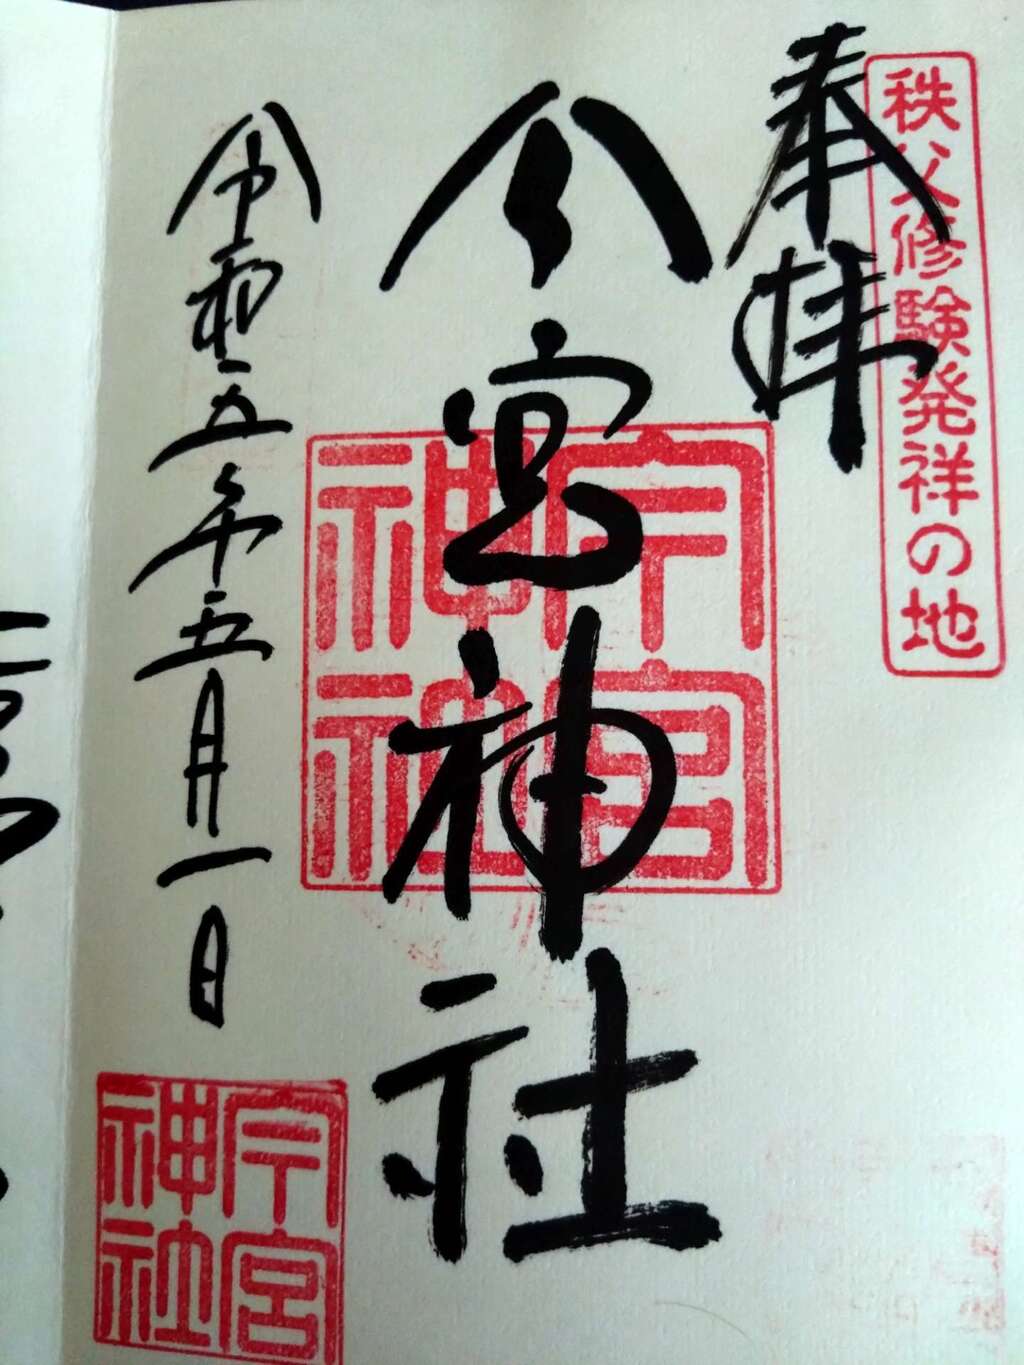 秩父修験発祥の地
奉拝
今宮神社
今宮
神社
令和五年五月一日
今宮
神社